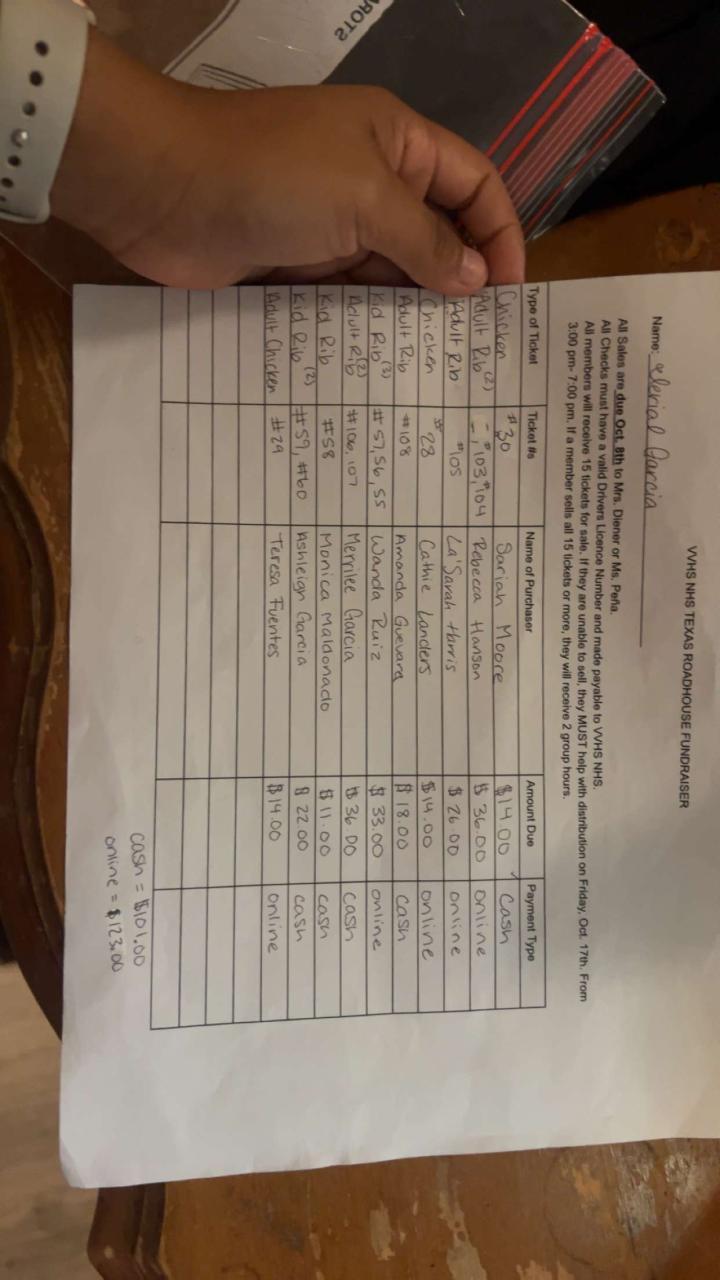 VVHS NHS TEXAS ROADHOUSE FUNDRAISER
Name: Garcia
All Sales are due Oct. 8th to Mrs. Diener or Ms. Peña.
All Checks must have a valid Drivers Licence Number and made payable to VVHS NHS.
All members will receive 15 tickets for sale. If they are unable to sell, they MUST help with distribution on Friday, Oct. 17th. From
3:00 pm- 7:00 pm. If a member sells all 15 tickets or more, they will receive 2 group hours.
Type of Ticket Ticket #s Name of Purchaser Amount Due Payment Type
Chicken #30 Sariah Moore $14.00 Cash
Adult Rib (2) #103, #104 Rebecca Hanson $36.00 online
Adult Rib #105 La'Sarah Harris $26.00 online
Chicken #28 Cathie Landers $14.00 online
Adult Rib #108 Amanda Guevara $18.00 cash
Kid Rib (3) #57, 56, 55 Wanda Ruiz $33.00 online
Adult Rib (2) #106, 107 Merrilee Garcia $36.00 cash
Kid Rib #58 Monica Maldonado $11.00 cash
Kid Rib (2) #59, #60 Ashleigh Garcia $22.00 cash
Adult Chicken #29 Teresa Fuentes $14.00 online
cash = $101.00
online = $123.00